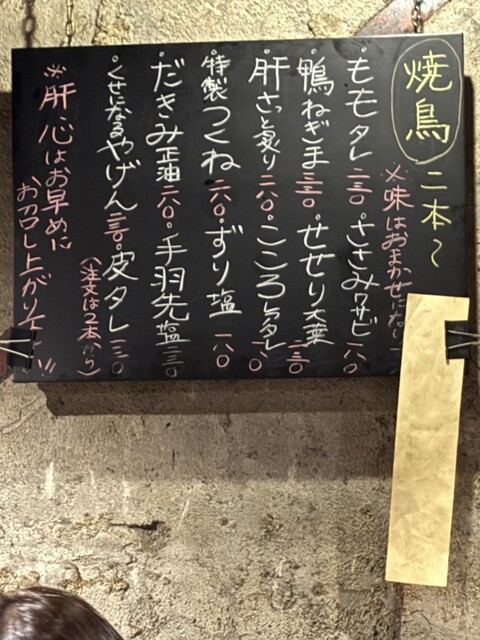 焼鳥 二本～
※味はおまかせになり
・ももタレ 二三〇
・ささみワサビ 一八〇
・鴨ねぎま 三三〇
・せせり大葉 二三〇
・肝さっと炙り 二八〇
・こころタレ 一八〇
・特製つくね 二六〇
・ずり塩 一八〇
・だきみ正油 二八〇
・手羽先塩 二三〇
・くせになるやげん 二三〇
・皮タレ 一三〇
(注文は2本から)
※肝心はお早めに
お召し上がり下さい!!